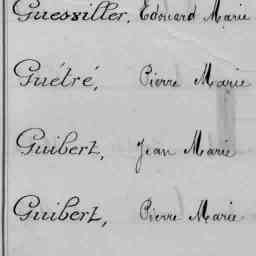 Guesviller, Edouard Marie
Guétré, Pierre Marie
Guibert, Jean Marie
Guibert, Pierre Marie